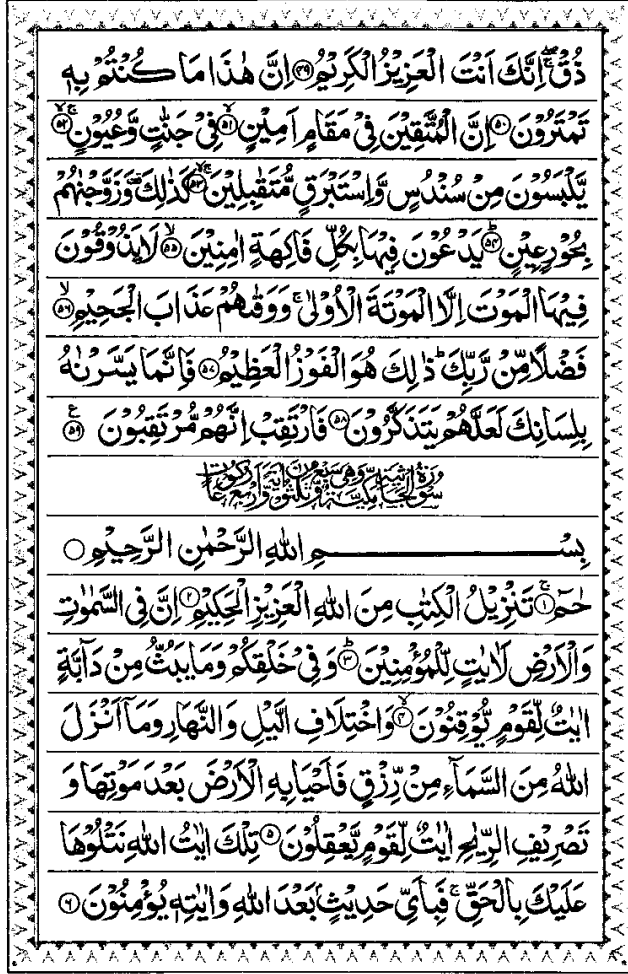 ذُقْ ۚۙ اِنَّكَ اَنْتَ الْعَزِيْزُ الْكَرِيْمُ ﴿۴۹﴾ اِنَّ هٰذَا مَا كُنْتُمْ بِهٖ
تَمْتَرُوْنَ ﴿۵۰﴾ اِنَّ الْمُتَّقِيْنَ فِيْ مَقَامٍ اَمِيْنٍ ﴿ۙ۵۱﴾ فِيْ جَنّٰتٍ وَّعُيُوْنٍ ﴿ۚۙ۵۲﴾
يَّلْبَسُوْنَ مِنْ سُنْدُسٍ وَّاِسْتَبْرَقٍ مُّتَقٰبِلِيْنَ ﴿ۚۙ۵۳﴾ كَذٰلِكَ ۫ وَزَوَّجْنٰهُمْ
بِحُوْرٍ عِيْنٍ ﴿ؕ۵۴﴾ يَدْعُوْنَ فِيْهَا بِكُلِّ فَاكِهَةٍ اٰمِنِيْنَ ﴿ۙ۵۵﴾ لَا يَذُوْقُوْنَ
فِيْهَا الْمَوْتَ اِلَّا الْمَوْتَةَ الْاُوْلٰى ۚ وَوَقٰىهُمْ عَذَابَ الْجَحِيْمِ ﴿ۙ۵۶﴾
فَضْلًا مِّنْ رَّبِّكَ ؕ ذٰلِكَ هُوَ الْفَوْزُ الْعَظِيْمُ ﴿۵۷﴾ فَاِنَّمَا يَسَّرْنٰهُ
بِلِسَانِكَ لَعَلَّهُمْ يَتَذَكَّرُوْنَ ﴿۵۸﴾ فَارْتَقِبْ اِنَّهُمْ مُّرْتَقِبُوْنَ ﴿۵۹﴾ ع
سُوْرَةُ الْجَاثِيَةِ مَكِّيَّةٌ وَّهِيَ سَبْعٌ وَّثَلٰثُوْنَ اٰيَةً وَّاَرْبَعُ رُكُوْعَاتٍ
بِسْمِ اللهِ الرَّحْمٰنِ الرَّحِيْمِ
حٰمٓ ﴿ۚ۱﴾ تَنْزِيْلُ الْكِتٰبِ مِنَ اللهِ الْعَزِيْزِ الْحَكِيْمِ ﴿۲﴾ اِنَّ فِي السَّمٰوٰتِ
وَالْاَرْضِ لَاٰيٰتٍ لِّلْمُؤْمِنِيْنَ ﴿ؕ۳﴾ وَفِيْ خَلْقِكُمْ وَمَا يَبُثُّ مِنْ دَآبَّةٍ
اٰيٰتٌ لِّقَوْمٍ يُّوْقِنُوْنَ ﴿ۙ۴﴾ وَاخْتِلَافِ الَّيْلِ وَالنَّهَارِ وَمَاۤ اَنْزَلَ
اللهُ مِنَ السَّمَآءِ مِنْ رِّزْقٍ فَاَحْيَا بِهِ الْاَرْضَ بَعْدَ مَوْتِهَا وَ
تَصْرِيْفِ الرِّيٰحِ اٰيٰتٌ لِّقَوْمٍ يَّعْقِلُوْنَ ﴿۵﴾ تِلْكَ اٰيٰتُ اللهِ نَتْلُوْهَا
عَلَيْكَ بِالْحَقِّ ۚ فَبِاَيِّ حَدِيْثٍۭ بَعْدَ اللهِ وَاٰيٰتِهٖ يُؤْمِنُوْنَ ﴿۶﴾